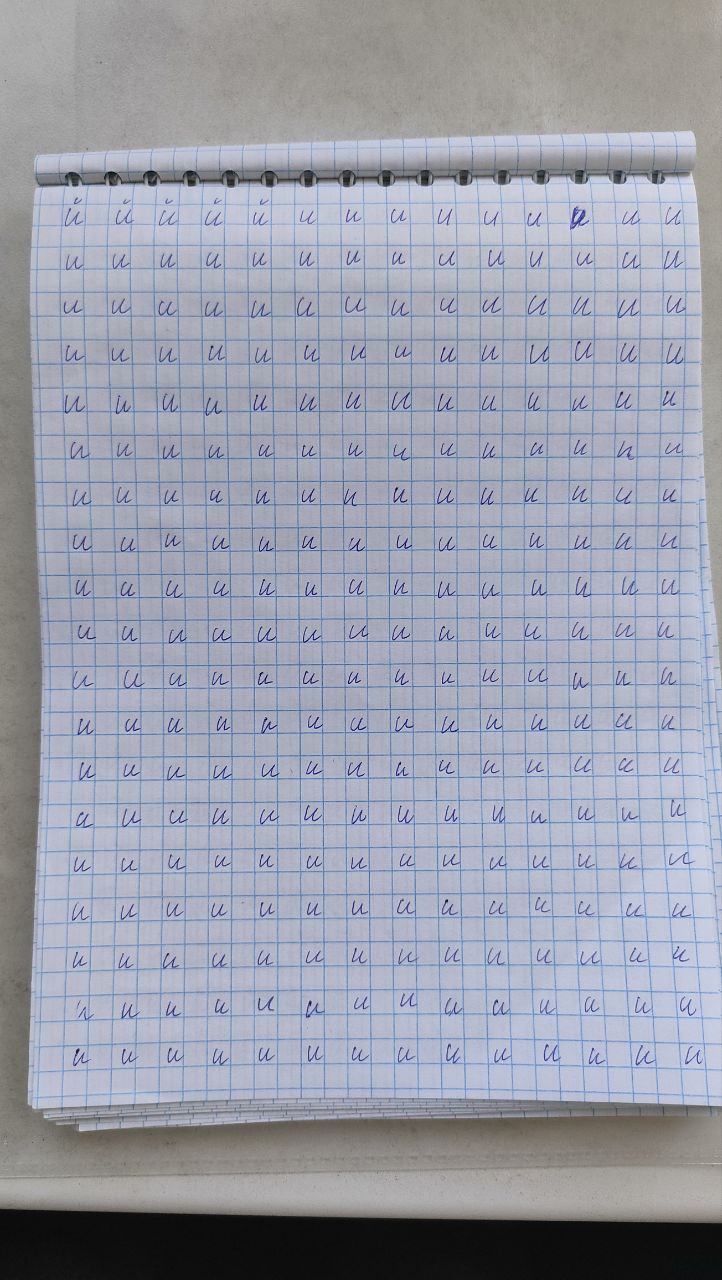 й й й й й и и и и и и и и и
и и и и и и и и и и и и и и
и и и и и и и и и и и и и и
и и и и и и и и и и и и и и
и и и и и и и и и и и и и и
и и и и и и и и и и и и и и
и и и и и и и и и и и и и и
и и и и и и и и и и и и и и
и и и и и и и и и и и и и и
и и и и и и и и и и и и и и
и и и и и и и и и и и и и и
и и и и и и и и и и и и и и
и и и и и и и и и и и и и и
и и и и и и и и и и и и и и
и и и и и и и и и и и и и и
и и и и и и и и и и и и и и
и и и и и и и и и и и и и и
и и и и и и и и и и и и и и
и и и и и и и и и и и и и и